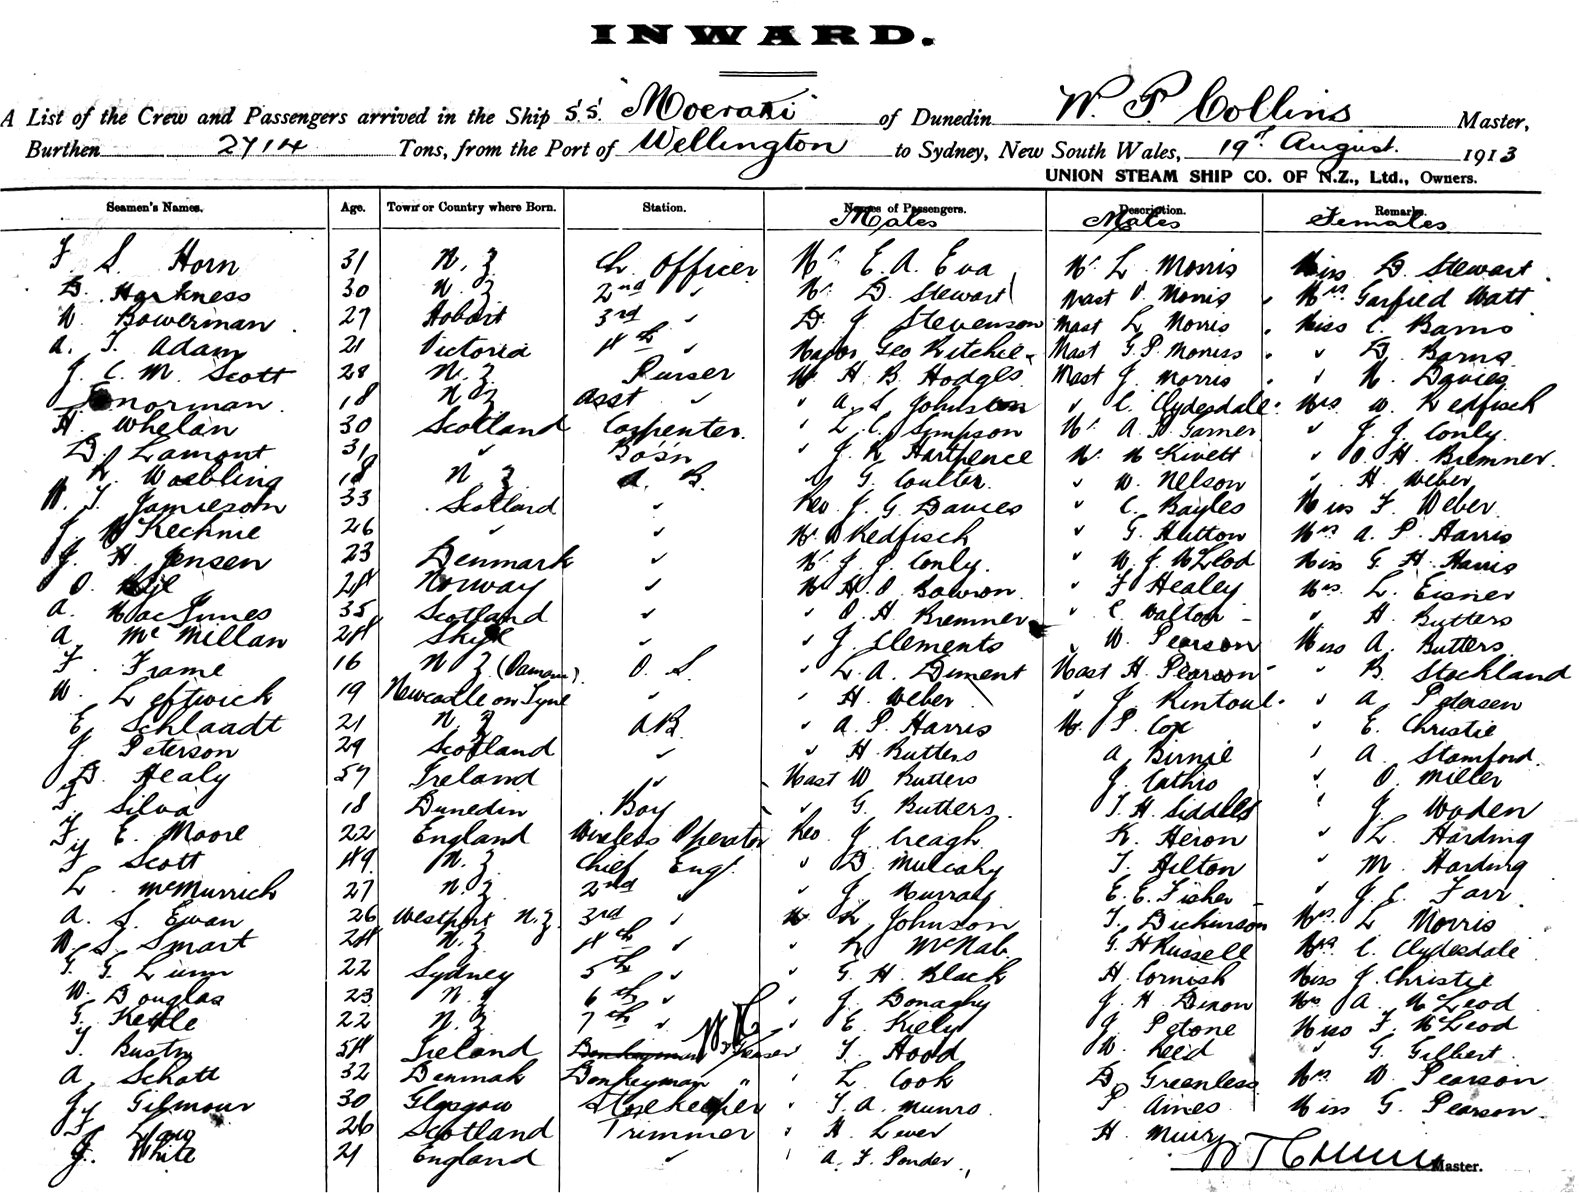 INWARD.
A List of the Crew and Passengers arrived in the Ship S.S. "Moeraki" of Dunedin W. P. Collins Master,
Burthen 2714 Tons, from the Port of Wellington to Sydney, New South Wales, 19th August. 1913
UNION STEAM SHIP CO. OF N.Z., Ltd., Owners.
Seamen's Names. Age. Town or Country where Born. Station. Names of Passengers. Description. Remarks.
Males Males Females
F. S. Horn 31 N.Z Ch. Officer Mr E. A. Eva Mr L. Morris Miss D. Stewart
D. Harkness 30 N.Z 2nd " Mr D. Stewart Mast V. Morris Mrs Garfied Watt
W. Bowerman 27 Hobart 3rd " D. J. Stevenson Mast L. Morris Miss C. Barns
A. T. Adam 21 Victoria 4th " Major Geo Ritchie Mast G. P. Morriss " D. Barns
J. C. M. Scott 28 N.Z Purser Mr H. B. Hodges Mast J. Morris " N. Davies
Norman 18 N.Z Asst " " A. S. Johnston " C. Clydesdale Mrs W. Redfisch
H. Whelan 30 Scotland Carpenter. " L. C. Simpson Mr A. H. Garner " J. J. Conly.
D. Lamont 31 " Bosn " J. R. Harthence Mr M Kivett " O. H. Bremner.
R. Woebling 18 N.Z A. B. " G. Coulter. " W. Nelson " H. Weber
W. T. Jamieson 33 Scotland " Rev J. G. Davies " C. Bayles Miss F. Weber.
J. McKechnie 26 " " Mr W Redfisch " G. Hutton Mrs A. P. Harris
J. H. Jensen 23 Denmark " Mr J. J. Conly. " W. J. McLeod Miss G. H. Harris
O. 24 Norway " Mr H. O. Bowron " F Healey Mrs L. Eisner
A. MacInnes 35 Scotland " " O. H. Bremner " C. Walton " H. Butters
A McMillan 24 Skye " " J. Clements " W. Pearson Miss A. Butters
F. Frame 16 N Z (Oamaru). O. S. " L. A. Diment Mast H. Pearson " B. Stockland
W. Leftwick 19 Newcastle on Tyne " " H. Weber " J. Rintoul " A. Petersen
E. Schlaadt 21 N.Z A.B. " A. P. Harris Mr P. Cox " E. Christie
J. Peterson 29 Scotland " " H. Butters A. Birnie " A. Stamford.
D. Healy 57 Ireland " Mast W Butters J. Cathro " O. Miller
F. Silva 18 Dunedin Boy " G. Butters. T. H. Siddells " J. Woden
F. E. Moore 22 England Wireless Operator Rev J. Creagh. K. Heron " L. Harding
F. Scott 49 N.Z Chief Engr. " D. Mulcahy T. Hilton " M. Harding
L. McMurrich 27 N.Z. 2nd " J. Murray E. E. Fisher " J. E. Farr
A. S. Ewan 26 Westport N.Z. 3rd " Mr L Johnson T. Dickinson Mrs L Morris
W. S. Smart 24 N.Z 4th " " R McNab. G. H Russell Mrs C. Clydesdale
G. G. Lunn 22 Sydney 5th " " G. H. Black H. Cornish Miss J. Christie
W. Douglas 23 N.Z 6th " " J. Donaghy J. H. Dixon Mrs A. McLeod
G. Kettle 22 N.Z. 7th " " E. Kielly J. Petone Miss F. McLeod
T. Bustin 54 Ireland Donkeyman Greaser " T. Hood W. Reed " G. Gilbert.
A. Schott 32 Denmak Donkeyman " " L. Cook D. Greenless Mrs W. Pearson
J. Gilmour 30 Glasgow Storekeeper " T. A. Munro. P. Aines Miss G. Pearson.
Law 26 Scotland Trimmer " H. Lever H. Muir
J. White 21 England " " A. F. Ponder.
Master.